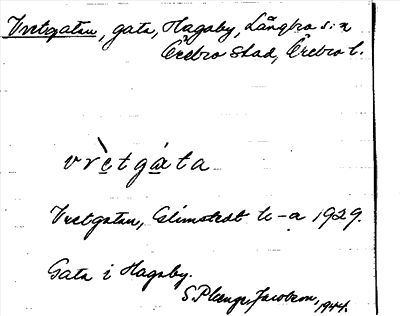 Vretgatan, gata, Hagaby, Längbro s:n
Örebro stad, Örebro l.
vrètgáta
Vretgatan, Almstedt k-a 1929.
Gata i Hagaby.
S. Plænge Jacobson,
1944.